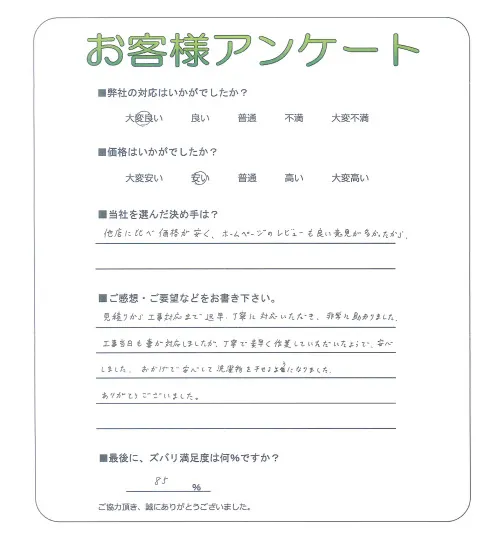 お客様アンケート
■弊社の対応はいかがでしたか？
大変良い 良い 普通 不満 大変不満
■価格はいかがでしたか？
大変安い 安い 普通 高い 大変高い
■当社を選んだ決め手は？
他店に比べ価格が安く、ホームページのレビューも良い意見が多かったから。
■ご感想・ご要望などをお書き下さい。
見積りから工事対応まで迅早、丁寧に対応いただき、非常に助かりました。
工事当日も妻が対応しましたが、丁寧で素早く作業していただいたようで、安心
しました。おかげで安心して洗濯物を干せるようになりました。
ありがとうございました。
■最後に、ズバリ満足度は何％ですか？
85 ％
ご協力頂き、誠にありがとうございました。